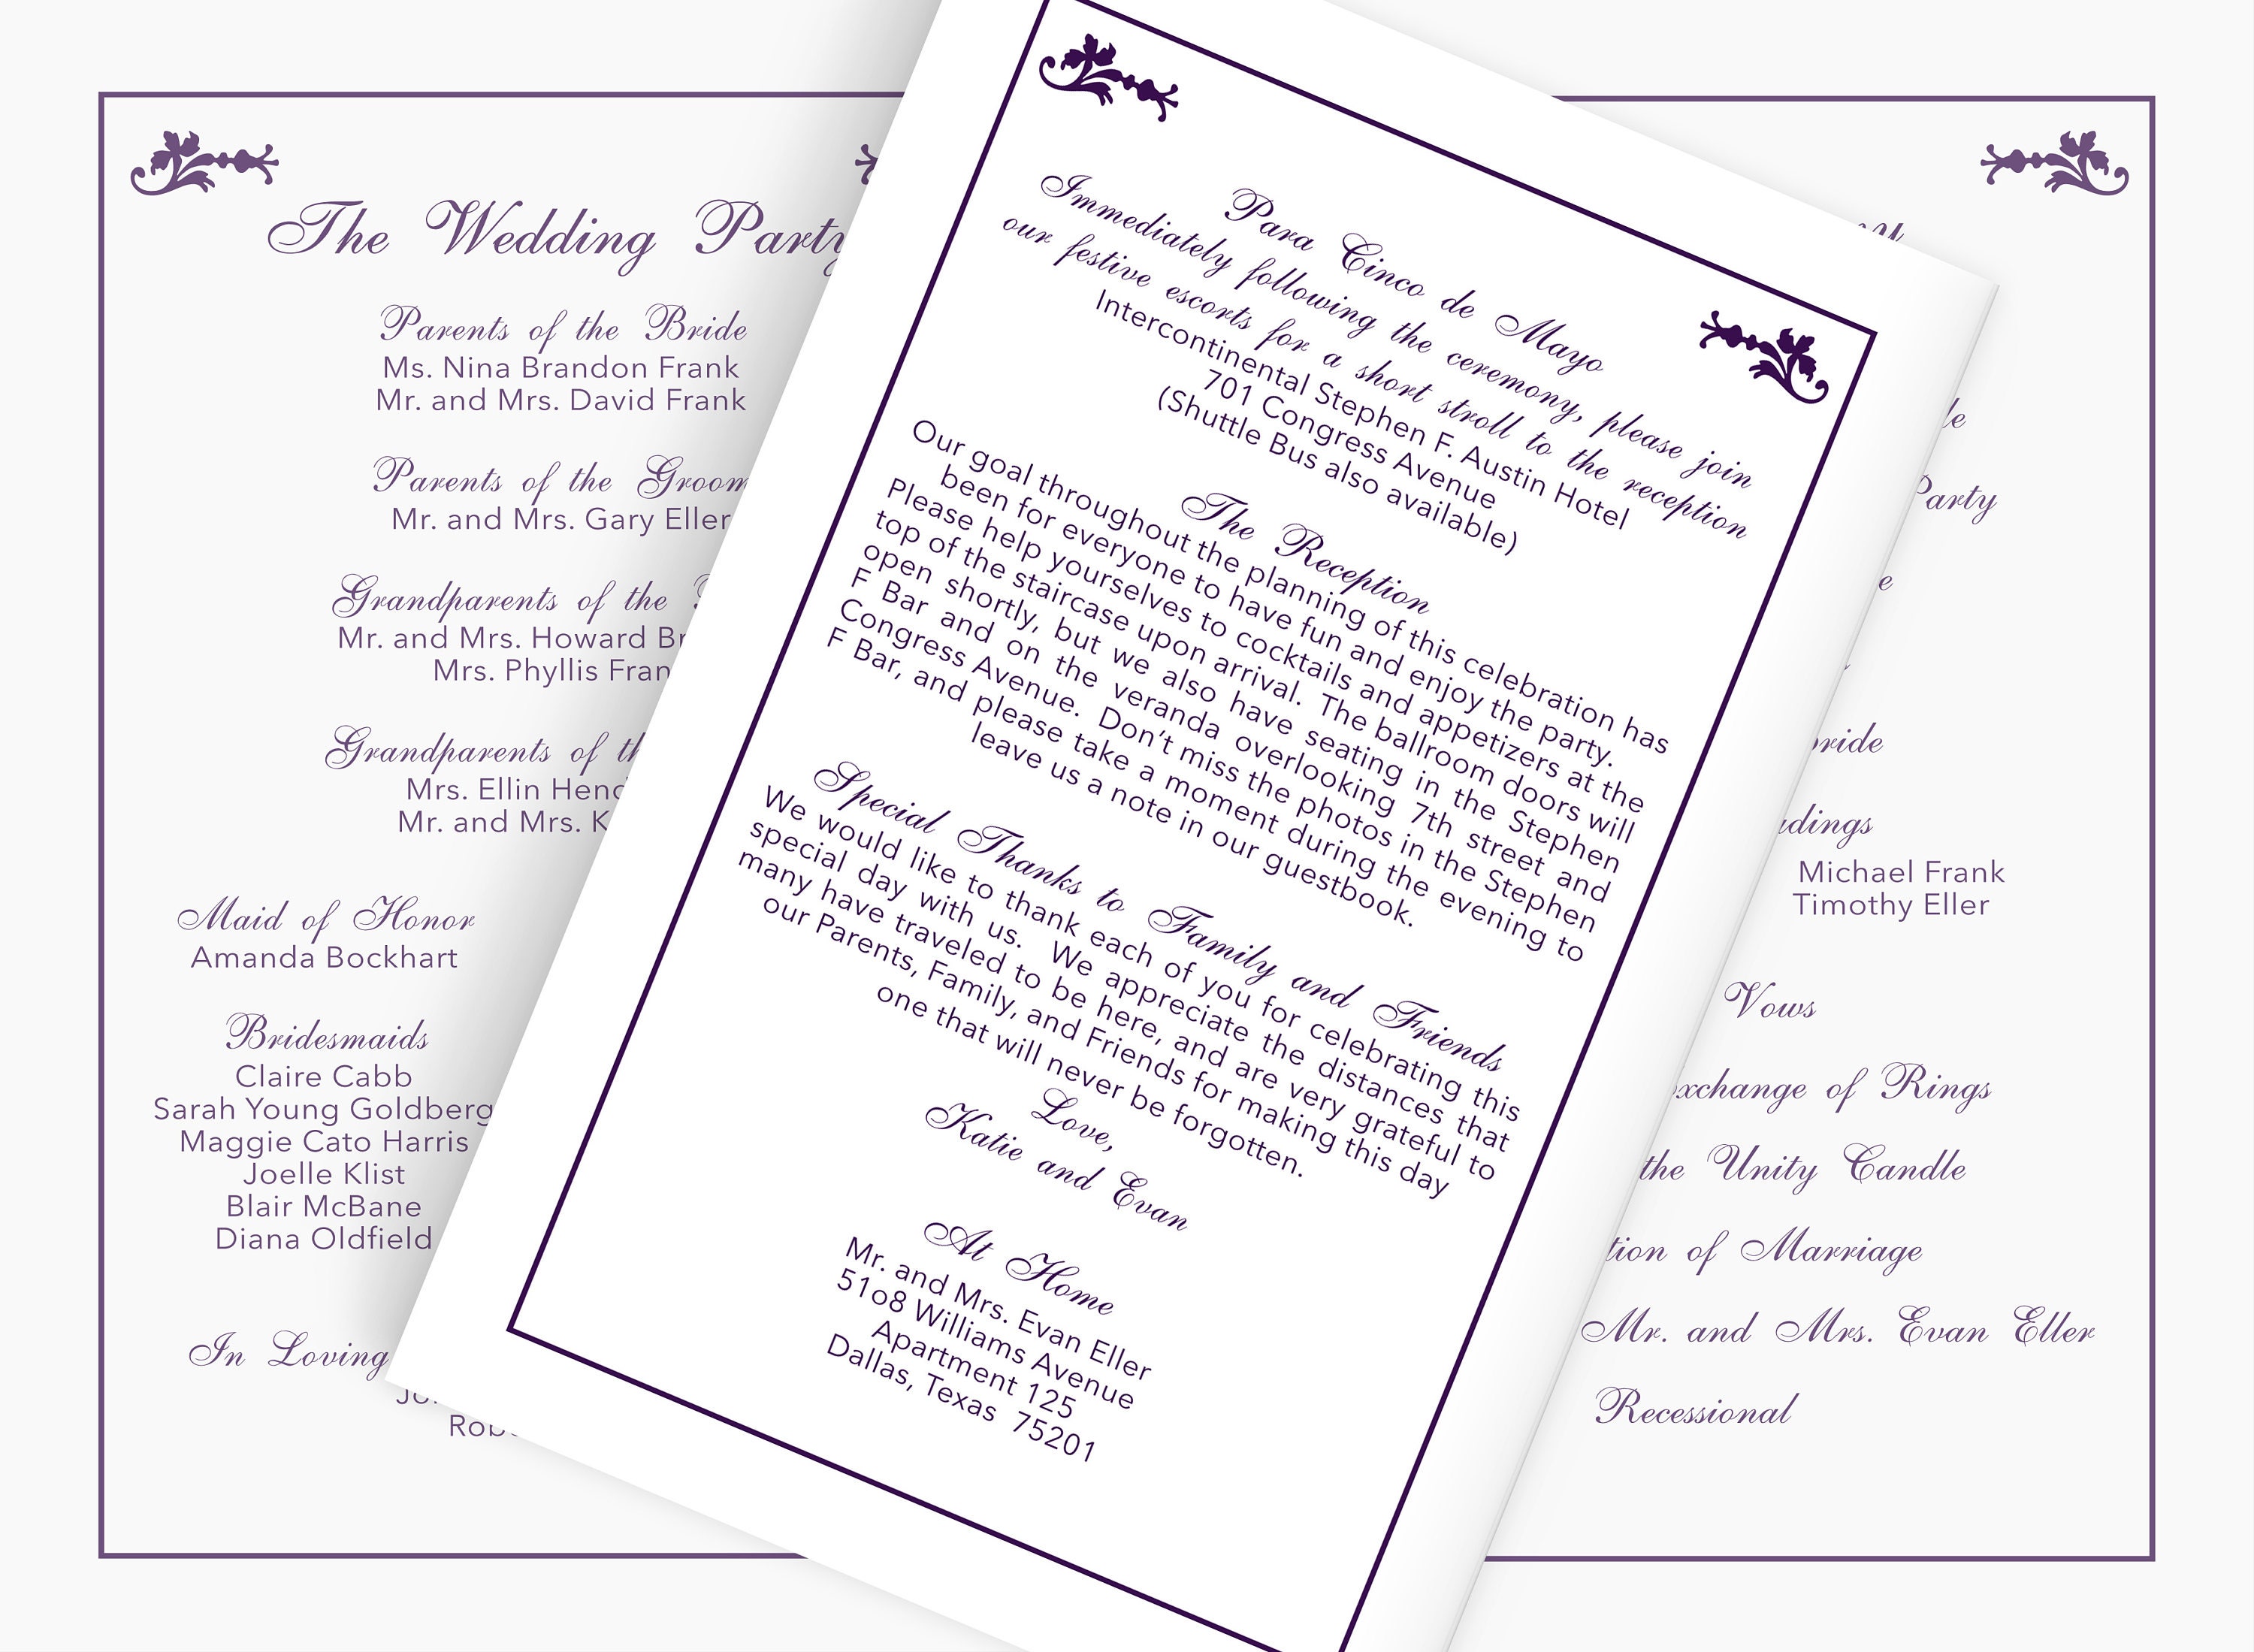 The Wedding Party
Parents of the Bride
Ms. Nina Brandon Frank
Mr. and Mrs. David Frank
Parents of the Groom
Mr. and Mrs. Gary Eller
Grandparents of the
Mr. and Mrs. Howard
Mrs. Phyllis
Grandparents of
Mrs. Ellin
Mr. and Mrs.
Maid of Honor
Amanda Bockhart
Bridesmaids
Claire Cabb
Sarah Young Goldberg
Maggie Cato Harris
Joelle Klist
Blair McBane
Diana Oldfield
In Loving
Para Cinco de Mayo
Immediately following the ceremony, please join
our festive escorts for a short stroll to the reception
Intercontinental Stephen F. Austin Hotel
701 Congress Avenue
(Shuttle Bus also available)
The Reception
Our goal throughout the planning of this celebration has
been for everyone to have fun and enjoy the party.
Please help yourselves to cocktails and appetizers at the
top of the staircase upon arrival. The ballroom doors will
open shortly, but we also have seating in the Stephen
F Bar and on the veranda overlooking 7th street and
Congress Avenue. Don't miss the photos in the Stephen
F Bar, and please take a moment during the evening to
leave us a note in our guestbook.
Special Thanks to Family and Friends
We would like to thank each of you for celebrating this
special day with us. We appreciate the distances that
many have traveled to be here, and are very grateful to
our Parents, Family, and Friends for making this day
one that will never be forgotten.
Love,
Katie and Evan
At Home
Mr. and Mrs. Evan Eller
51o8 Williams Avenue
Apartment 125
Dallas, Texas 75201
Party
Michael Frank
Timothy Eller
Vows
of Rings
the Unity Candle
of Marriage
Mr. and Mrs. Evan Eller
Recessional